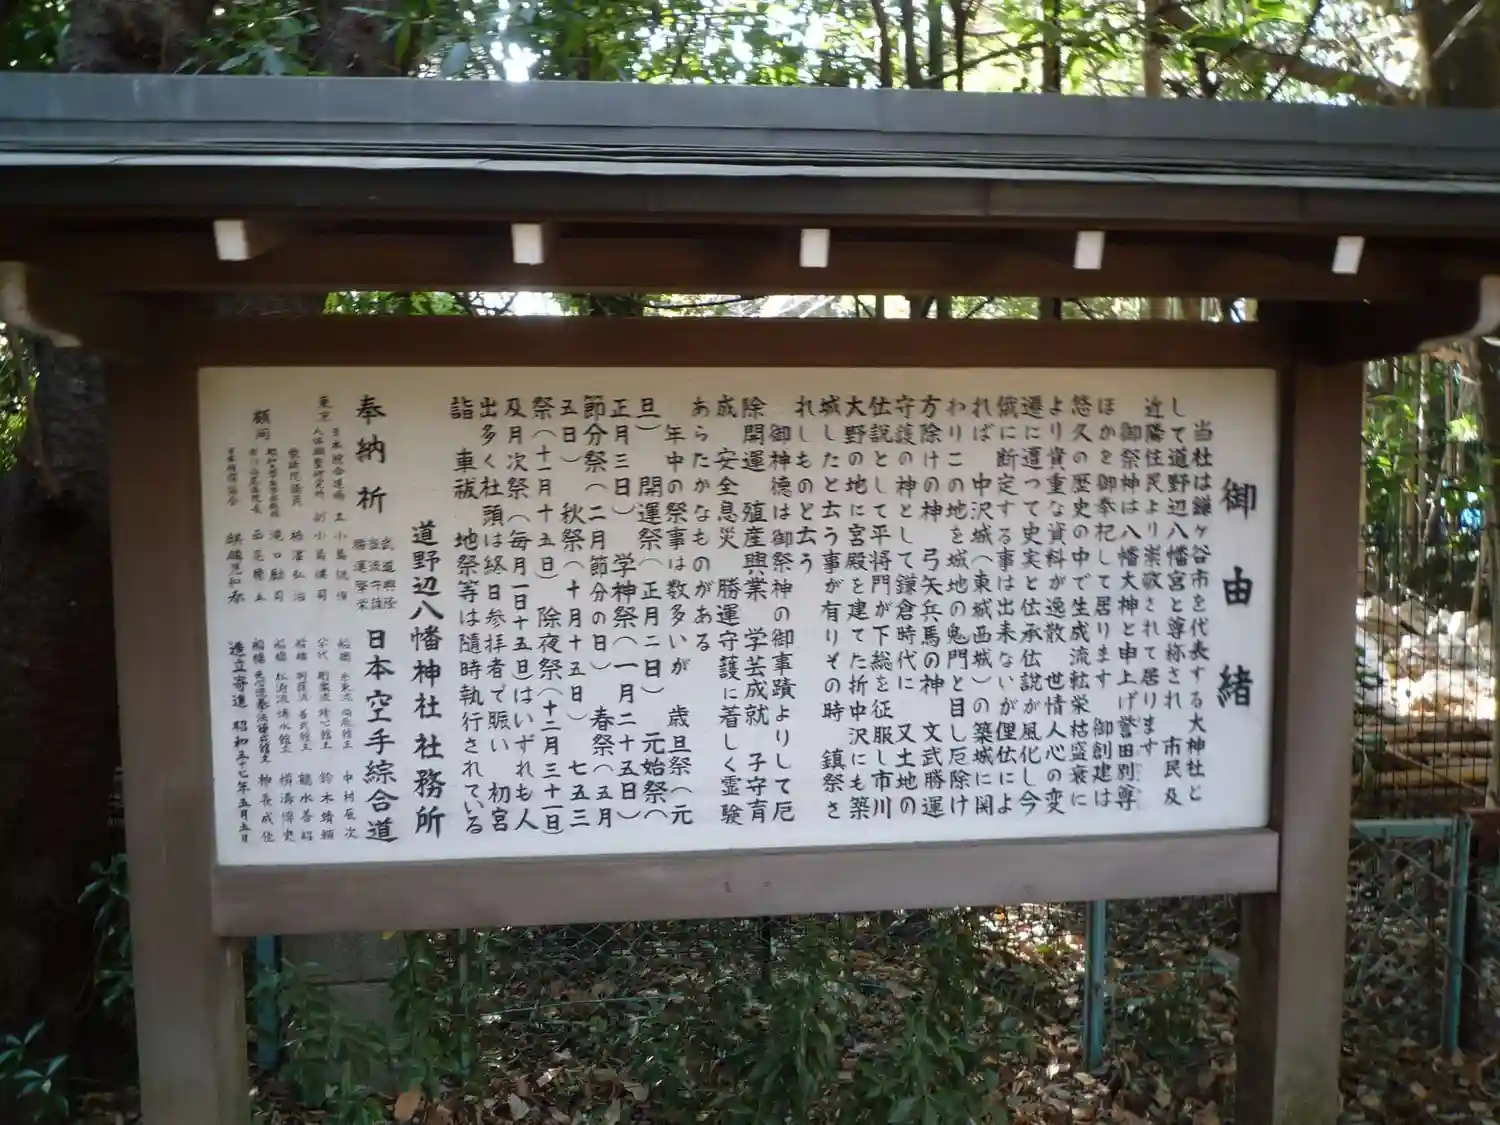 御由緒
当社は鎌ヶ谷市を代表する大神社と
して道野辺八幡宮と尊称され 市民及
近隣住民より崇敬されて居ります
御祭神は八幡大神と申上げ誉田別尊
ほかを御奉祀して居ります 御創建は
悠久の歴史の中で生成流転栄枯盛衰に
より貴重な資料が逸散 世情人心の変
遷に遭つて史実と伝承伝説が風化し今
俄に断定する事は出来ないが俚伝によ
れば 中沢城（東城西城）の築城に関
わりこの地を城地の鬼門と目し厄除け
方除けの神 弓矢兵馬の神 文武勝運
守護の神として鎌倉時代に 又土地の
伝説として平将門が下総を征服し市川
大野の地に宮殿を建てた折中沢にも築
城したと云う事が有りその時 鎮祭さ
れしものと云う
御神徳は御祭神の御事蹟よりして厄
除開運 殖産興業 学芸成就 子守育
成 安全息災 勝運守護に著しく霊験
あらたかなものがある
年中の祭事は数多いが 歳旦祭（元
旦） 開運祭（正月二日） 元始祭（
正月三日） 学神祭（一月二十五日）
節分祭（二月節分の日） 春祭（五月
五日） 秋祭（十月十五日） 七五三
祭（十一月十五日） 除夜祭（十二月三十一日）
及月次祭（毎月一日十五日）はいずれも人
出多く社頭は終日参拝者で賑い 初宮
詣 車祓 地祭等は随時執行されている
道野辺八幡神社社務所
奉納 祈 武道興隆 当流守護 勝運繁栄 日本空手綜合道
日本綜合道場 主 小島
東京 人体調整研究所 副 小島
中村 辰次
鈴木 靖頼
鶴水 善昭
顧問
滝口 勲司
柳 長成佳
造立寄進 昭和五十七年五月五日